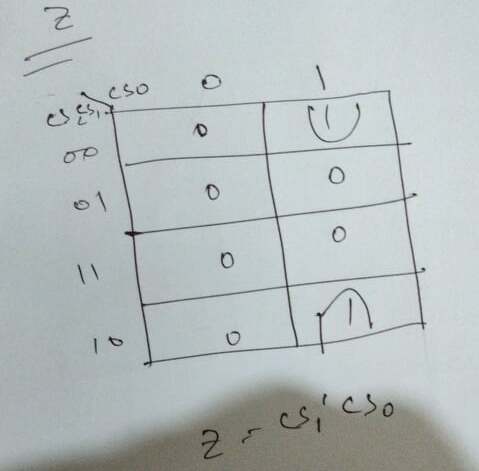 Z
CS2CS1 CS0 0 1
00 0 1
01 0 0
11 0 0
10 0 1
Z = CS1' CS0